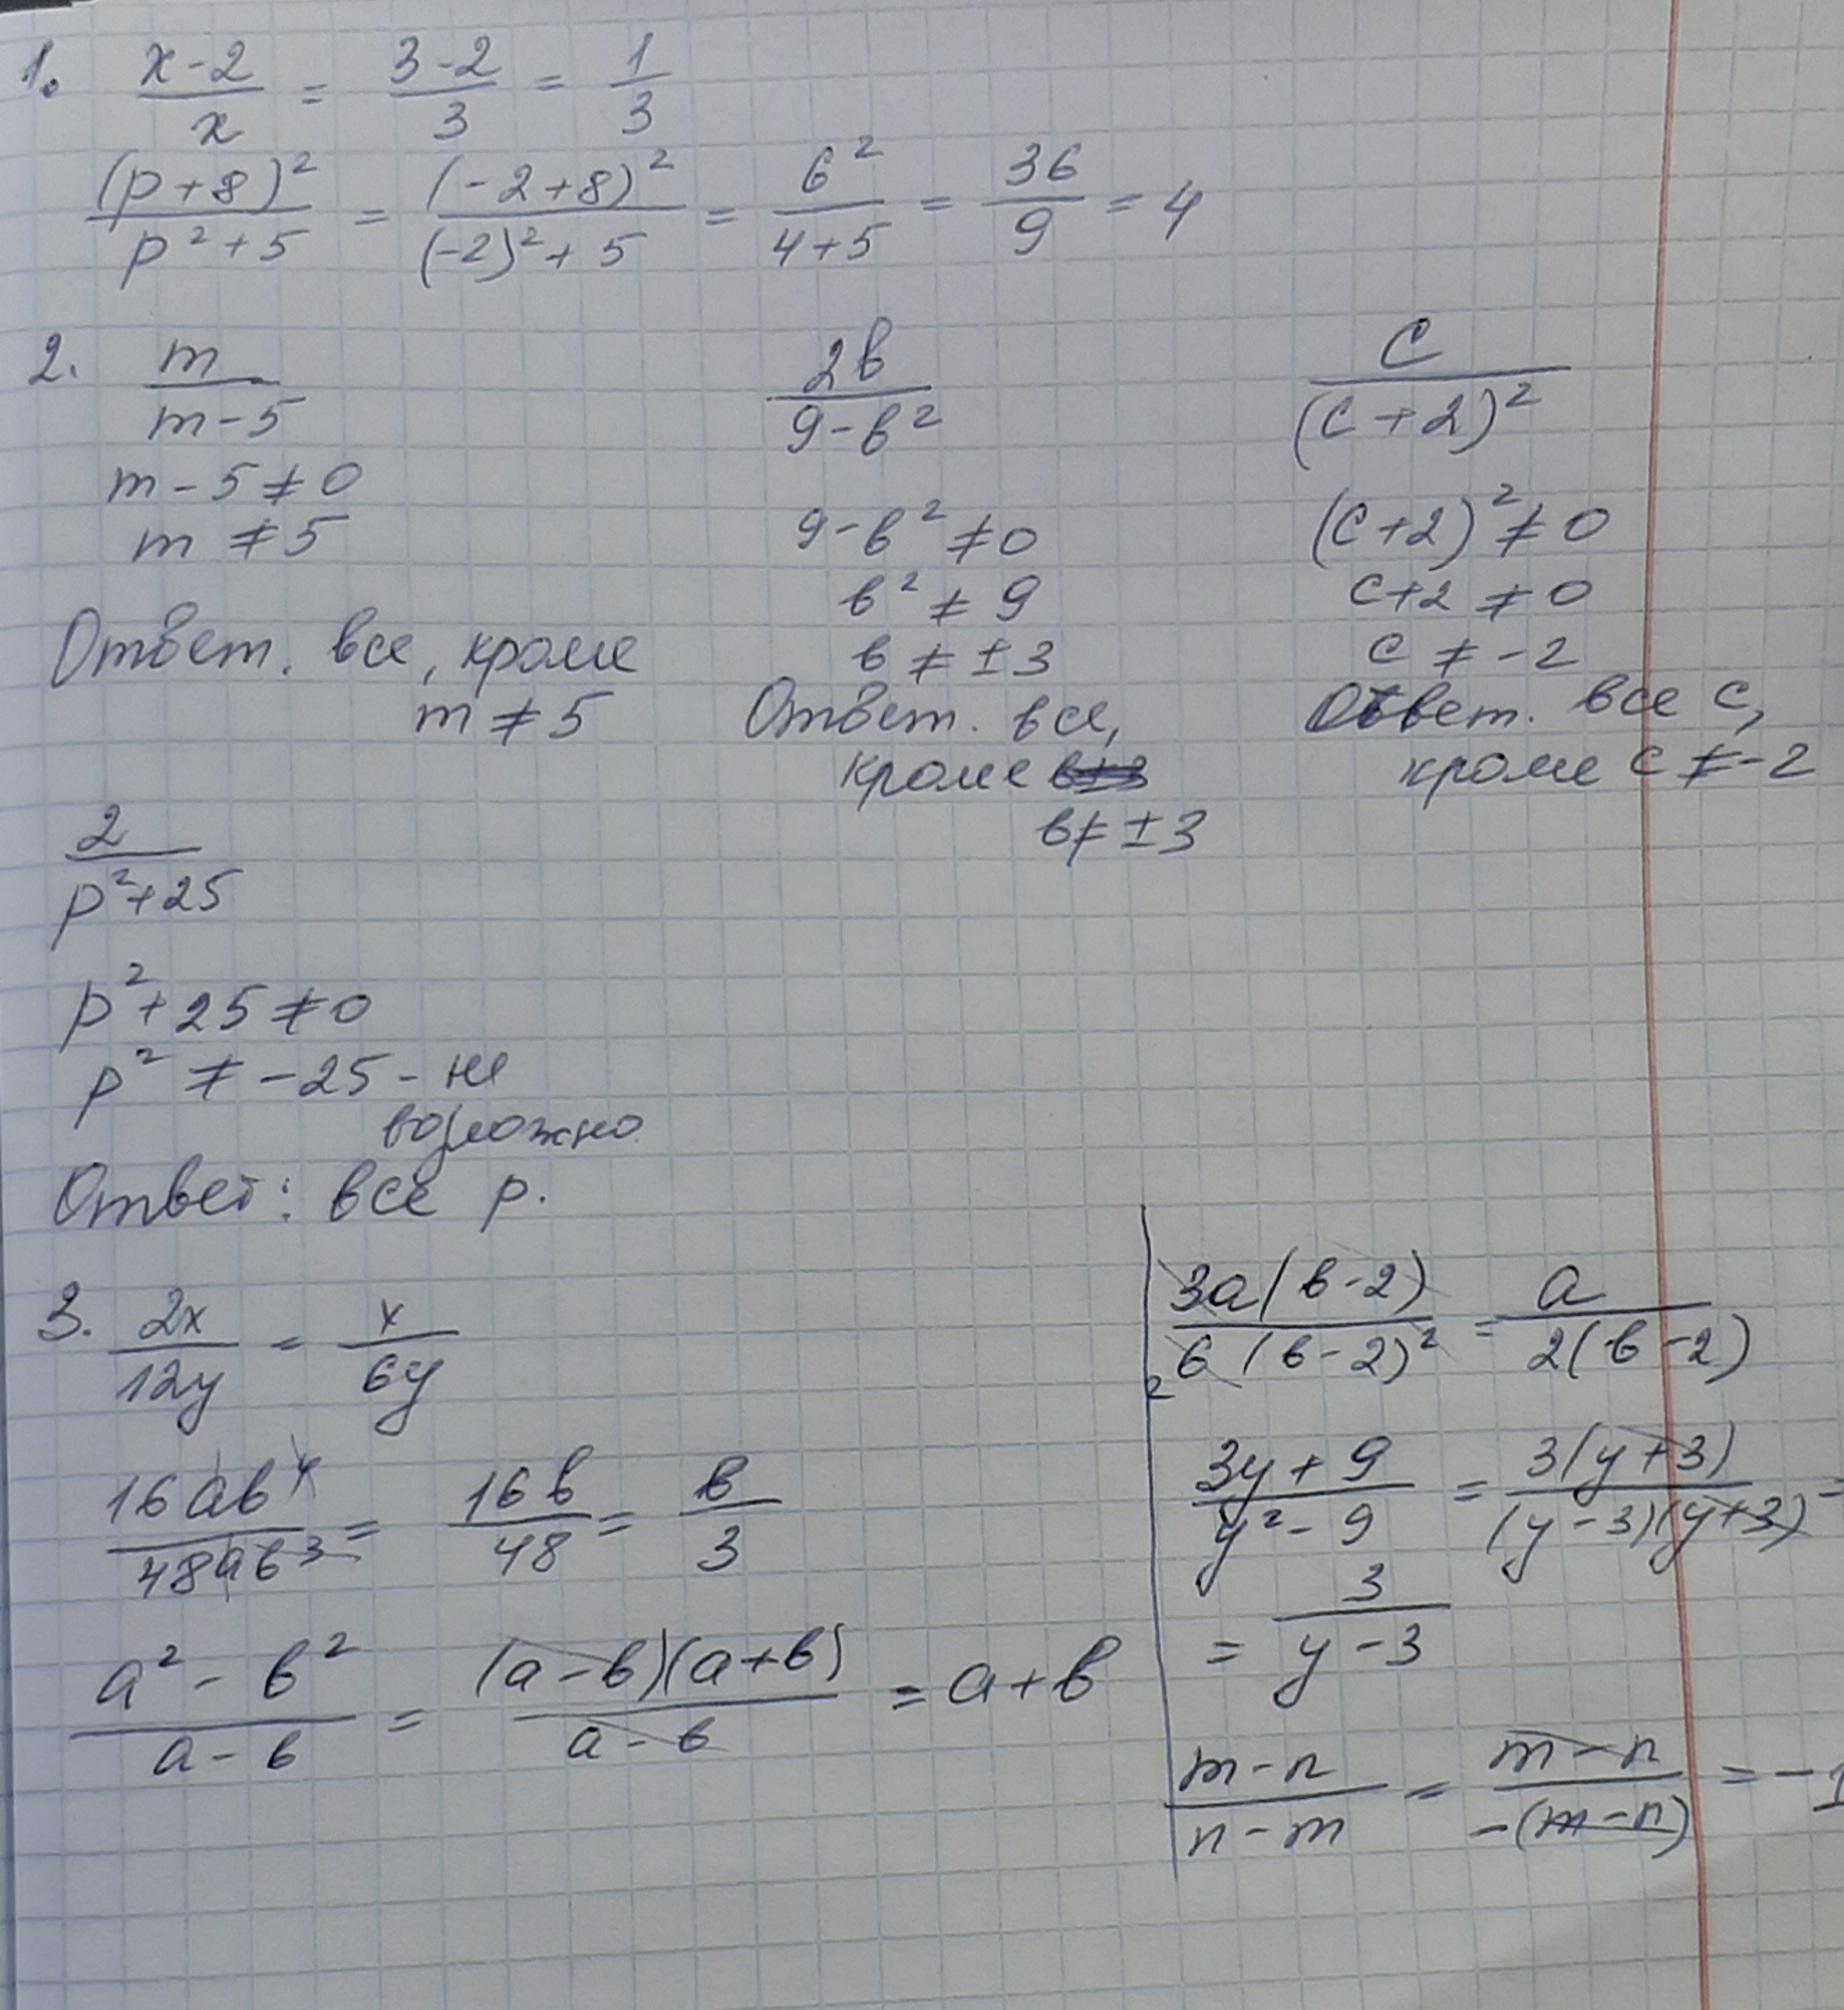 1. (x-2)/x = (3-2)/3 = 1/3
(p+8)²/(p²+5) = (-2+8)²/((-2)²+5) = 6²/(4+5) = 36/9 = 4
2. m/(m-5)
m-5≠0
m≠5
Ответ. все, кроме
m≠5
2в/(9-в²)
9-в²≠0
в²≠9
в≠±3
Ответ. все,
кроме
в≠±3
c/(c+2)²
(c+2)²≠0
c+2≠0
c≠-2
Ответ. все c,
кроме c≠-2
2/(p²+25)
p²+25≠0
p²≠-25 - не
возможно
Ответ: все p.
3. 2x/12y = x/6y
16aв⁴/48aв³ = 16в/48 = в/3
(a²-в²)/(a-в) = (a-в)(a+в)/(a-в) = a+в
3a(в-2)/6(в-2)² = a/2(в-2)
2
(3y+9)/(y²-9) = 3(y+3)/(y-3)(y+3) =
= 3/(y-3)
(m-n)/(n-m) = (m-n)/-(m-n) = -1